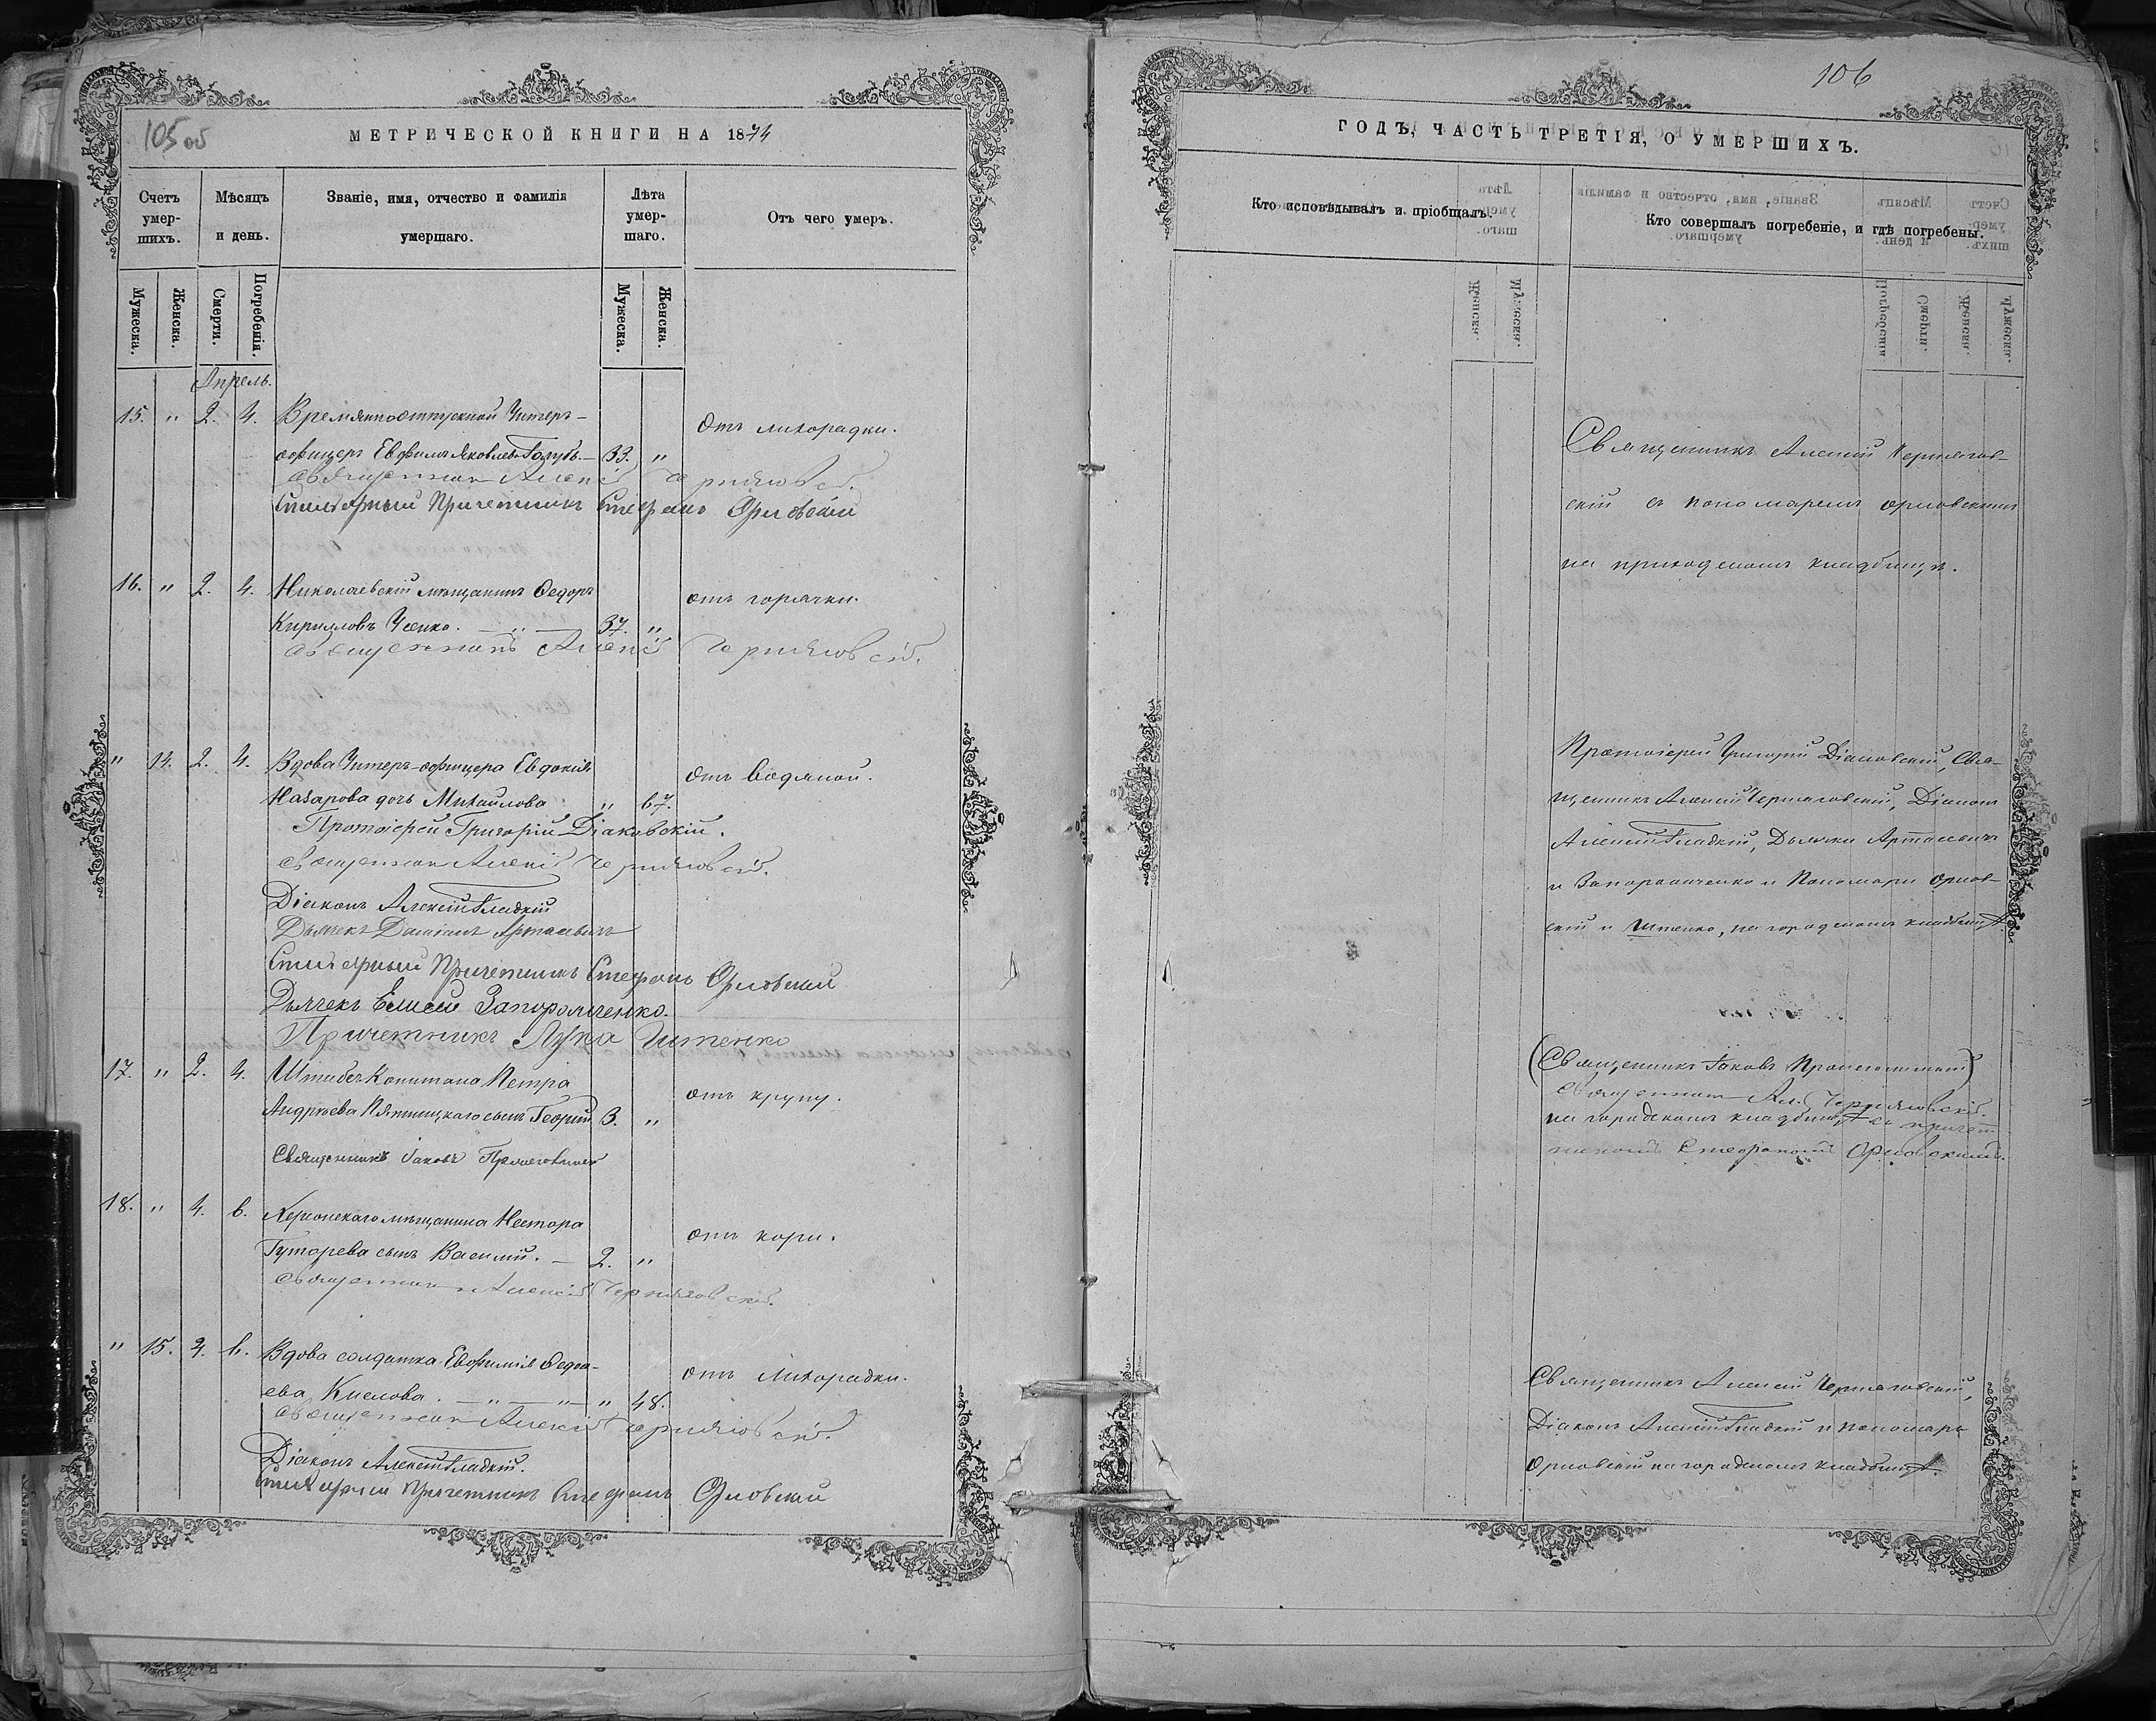 105 об
МЕТРИЧЕСКОЙ КНИГИ НА 1874
Счетъ умер-шихъ.
Мѣсяцъ и день.
Званіе, имя, отчество и фамилія умершаго.
Лѣта умер-шаго.
Отъ чего умеръ.
Мужеска.
Женска.
Смерти.
Погребенія.
Мужеска.
Женска.
Апрель.
15. " 2. 4. Времянноотпускной Унтеръ-
офицеръ Евфимъ Яковлевъ Голубъ. — 33. "
отъ лихорадки.
священникъ Алексій Черняховскій.
Стихарный Причетникъ Стефанъ Орловскій
16. " 2. 4. Николаевскій мѣщанинъ Ѳедоръ
Кирилловъ Усенко. — " — 37. "
отъ горячки.
священникъ Алексій Черняховскій.
" 14. 2. 4. Вдова Унтеръ-офицера Евдокія
Назарова дочь Михайлова " 67.
отъ водяной.
Протоіерей Григорій Діаковскій.
священникъ Алексій Черняховскій.
Діаконъ Алексій Гладкій
Дьячекъ Даміанъ Артасевичъ
Стихарный Причетникъ Стефанъ Орловскій
Дьячекъ Елисей Запорожченко.
Причетникъ Лука Иштенко
17. " 2. 4. Штабсъ Капитана Петра
Андреева Пятницкаго сынъ Георгій 3. "
отъ крупу.
Священникъ Іаковъ
18. " 4. 6. Херсонскаго мѣщанина Нестора
Гуторева сынъ Василій. — 2. "
отъ кори.
священникъ Алексій Черняховскій.
" 15. 4. 6. Вдова солдатка Евфимія Ѳедо-
ева Кислова. — " — " — " 48.
отъ лихорадки.
священникъ Алексій Черняховскій.
Діаконъ Алексій Гладкій.
Стихарный Причетникъ Стефанъ Орловскій
106
ГОДЪ, ЧАСТЬ ТРЕТІЯ, О УМЕРШИХЪ.
Кто исповѣдывалъ и пріобщалъ.
Кто совершалъ погребеніе, и гдѣ погребены.
Священникъ Алексій Черняхов-
скій съ пономаремъ Орловскимъ
на приходскомъ кладбищѣ.
Протоіерей Григорій Діаковскій, Свя-
щенникъ Алексій Черняховскій, Діаконъ
Алексій Гладкій, Дьячки Артасевичъ
и Запорожченко и Пономари Орлов-
скій и Иштенко, на городскомъ кладбищѣ
(Священникъ Іаковъ
Священникъ Ал. Черняховскій.
на городскомъ кладбищѣ съ причет
никомъ Стефаномъ Орловскимъ.
Священникъ Алексій Черняховскій,
Діаконъ Алексій Гладкій и пономарь
Орловскій на городскомъ кладбищѣ.